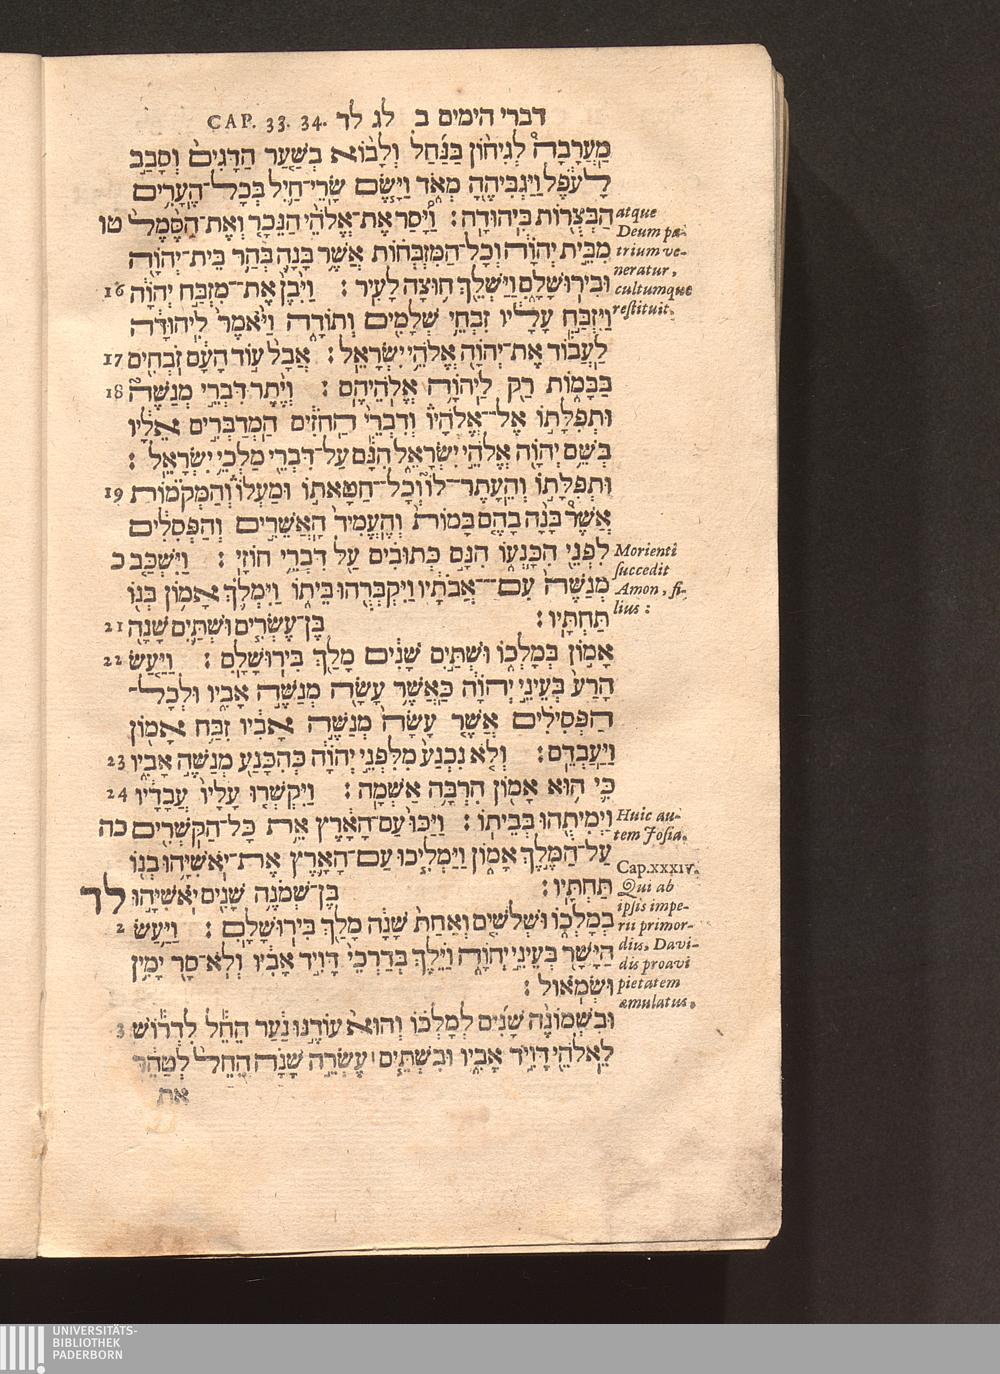 דברי הימים ב לג לד CAP. 33. 34.
מַעֲרָבָה לְגִיחוֹן בַּנַּחַל וְלָבוֹא בְשַׁעַר הַדָּגִים וְסָבַב
לָעֹפֶל וַיַּגְבִּיהֶהָ מְאֹד וַיָּשֶׂם שָׂרֵי־חַיִל בְּכָל־הֶעָרִים
הַבְּצֻרוֹת בִּיהוּדָה׃ וַיָּסַר אֶת־אֱלֹהֵי הַנֵּכָר וְאֶת־הַסֶּמֶל טו
מִבֵּית יְהוָה וְכָל־הַמִּזְבְּחוֹת אֲשֶׁר בָּנָה בְּהַר בֵּית־יְהוָה
וּבִירוּשָׁלִָם וַיַּשְׁלֵךְ חוּצָה לָעִיר׃ וַיִּבֶן אֶת־מִזְבַּח יְהוָה 16
וַיִּזְבַּח עָלָיו זִבְחֵי שְׁלָמִים וְתוֹדָה וַיֹּאמֶר לִיהוּדָה
לַעֲבוֹד אֶת־יְהוָה אֱלֹהֵי יִשְׂרָאֵל׃ אֲבָל עוֹד הָעָם זֹבְחִים 17
בַּבָּמוֹת רַק לַיהוָה אֱלֹהֵיהֶם׃ וְיֶתֶר דִּבְרֵי מְנַשֶּׁה 18
וּתְפִלָּתוֹ אֶל־אֱלֹהָיו וְדִבְרֵי הַחֹזִים הַמְדַבְּרִים אֵלָיו
בְּשֵׁם יְהוָה אֱלֹהֵי יִשְׂרָאֵל הִנָּם עַל־דִּבְרֵי מַלְכֵי יִשְׂרָאֵל׃
וּתְפִלָּתוֹ וְהֵעָתֶר־לוֹ וְכָל־חַטָּאתוֹ וּמַעְלוֹ וְהַמְּקֹמוֹת 19
אֲשֶׁר בָּנָה בָהֶם בָּמוֹת וְהֶעֱמִיד הָאֲשֵׁרִים וְהַפְּסִלִים
לִפְנֵי הִכָּנְעוֹ הִנָּם כְּתוּבִים עַל דִּבְרֵי חוֹזָי׃ וַיִּשְׁכַּב כ
מְנַשֶּׁה עִם־אֲבֹתָיו וַיִּקְבְּרֻהוּ בֵּיתוֹ וַיִּמְלֹךְ אָמוֹן בְּנוֹ
תַּחְתָּיו׃ בֶּן־עֶשְׂרִים וּשְׁתַּיִם שָׁנָה 21
אָמוֹן בְּמָלְכוֹ וּשְׁתַּיִם שָׁנִים מָלַךְ בִּירוּשָׁלִָם׃ וַיַּעַשׂ 22
הָרַע בְּעֵינֵי יְהוָה כַּאֲשֶׁר עָשָׂה מְנַשֶּׁה אָבִיו וּלְכָל־
הַפְּסִילִים אֲשֶׁר עָשָׂה מְנַשֶּׁה אָבִיו זִבַּח אָמוֹן
וַיַּעַבְדֵם׃ וְלֹא נִכְנַע מִלִּפְנֵי יְהוָה כְּהִכָּנַע מְנַשֶּׁה אָבִיו 23
כִּי הוּא אָמוֹן הִרְבָּה אַשְׁמָה׃ וַיִּקְשְׁרוּ עָלָיו עֲבָדָיו 24
וַיְמִיתֻהוּ בְּבֵיתוֹ׃ וַיַּכּוּ עַם־הָאָרֶץ אֵת כָּל־הַקֹּשְׁרִים כה
עַל־הַמֶּלֶךְ אָמוֹן וַיַּמְלִיכוּ עַם־הָאָרֶץ אֶת־יֹאשִׁיָּהוּ בְנוֹ
תַּחְתָּיו׃ בֶּן־שְׁמֹנֶה שָׁנִים יֹאשִׁיָּהוּ לד
בְמָלְכוֹ וּשְׁלֹשִׁים וְאַחַת שָׁנָה מָלַךְ בִּירוּשָׁלִָם׃ וַיַּעַשׂ 2
הַיָּשָׁר בְּעֵינֵי יְהוָה וַיֵּלֶךְ בְּדַרְכֵי דָּוִיד אָבִיו וְלֹא־סָר יָמִין
וּשְׂמֹאול׃
וּבִשְׁמוֹנֶה שָׁנִים לְמָלְכוֹ וְהוּא עוֹדֶנּוּ נַעַר הֵחֵל לִדְרוֹשׁ 3
לֵאלֹהֵי דָּוִיד אָבִיו וּבִשְׁתֵּים עֶשְׂרֵה שָׁנָה הֵחֵל לְטַהֵר
את
atque
Deum pa-
trium ve-
neratur,
cultumque
restituit.
Morienti
succedit
Amon, fi-
lius:
Huic au-
tem Josia.
Cap.xxxiv.
Qui ab
ipsis impe-
rii primor-
diis, Davi-
dis proavi
pietatem
æmulatus.
UNIVERSITÄTS-
BIBLIOTHEK
PADERBORN